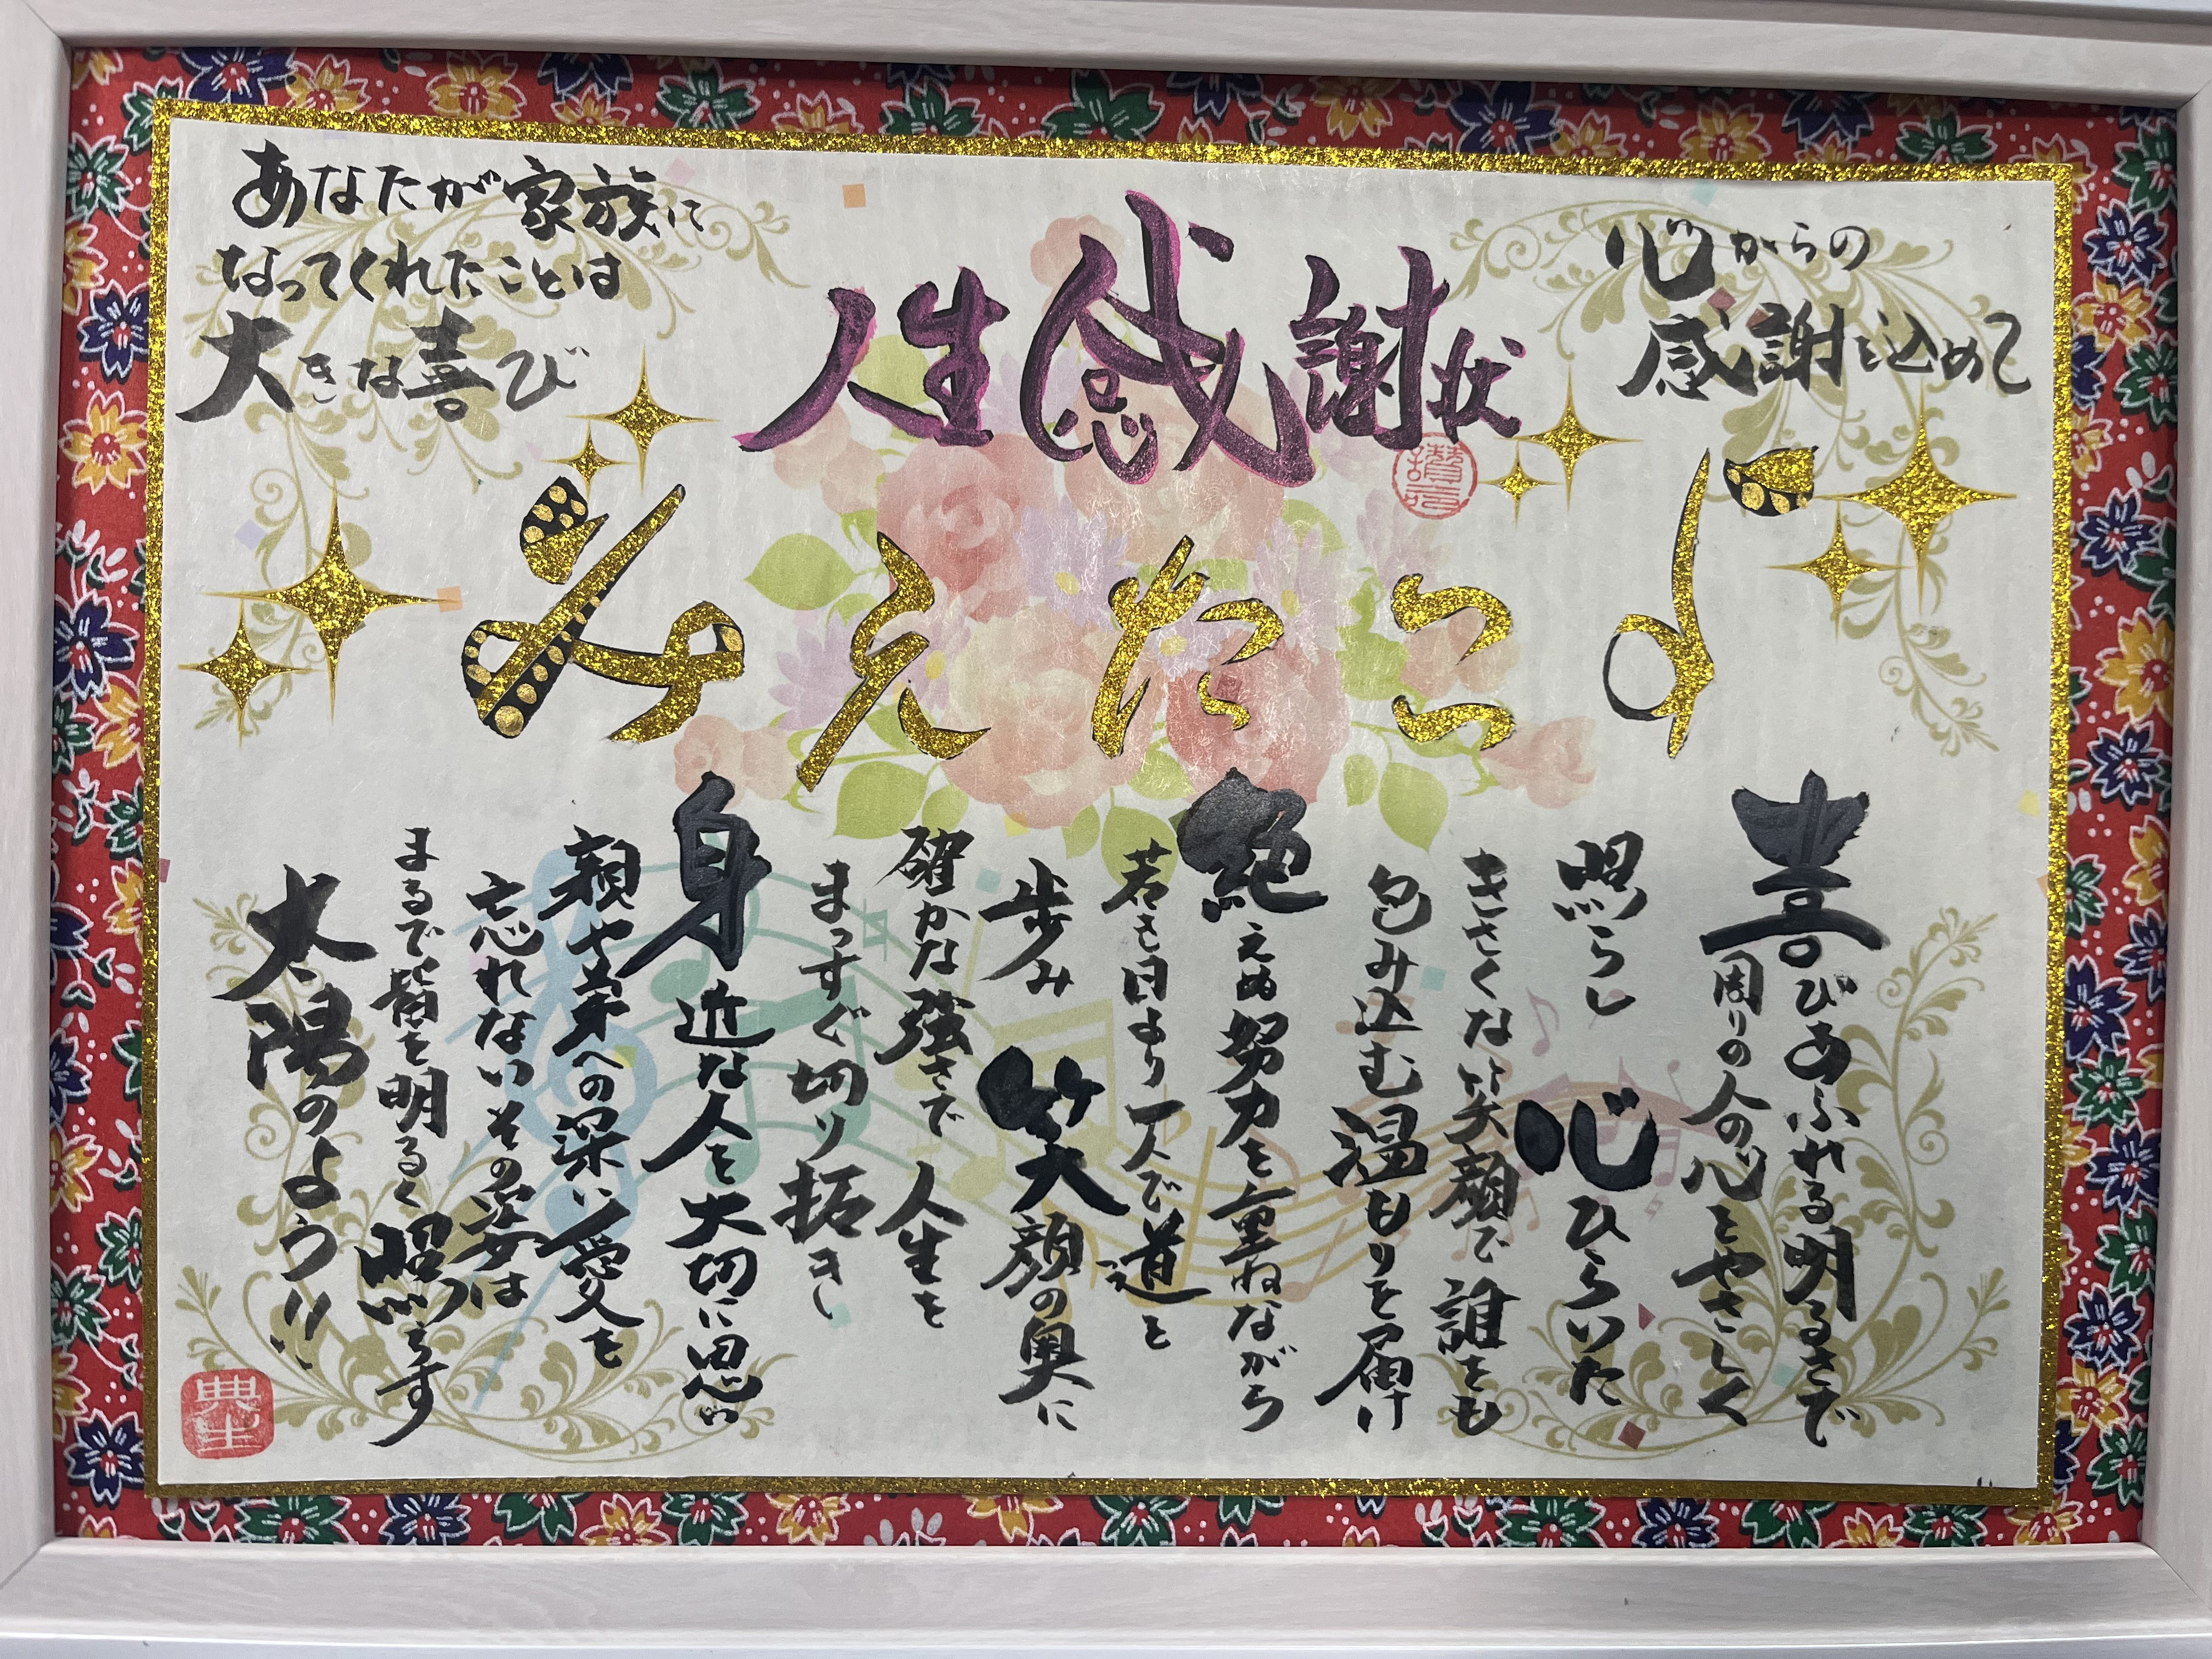 人生感謝状
心からの
感謝を込めて
あなたが家族に
なってくれたことは
大きな喜び
よこたえみ
喜びあふれる明るさで
周りの人の心をやさしく
照らし 心ひらいた
きさくな笑顔で誰をも
包み込む温もりを届け
絶えぬ努力を重ねながら
若き日より一人で道を
歩み 笑顔の奥に
確かな強さで 人生を
まっすぐ切り拓き
身近な人を大切に思い
親や弟への深い愛も
忘れないその姿は
まるで皆を明るく照らす
太陽のよう!!
典生